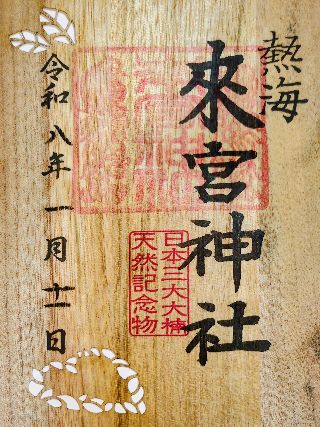 熱海
來宮神社
日本三大大楠
天然記念物
令和八年一月十一日